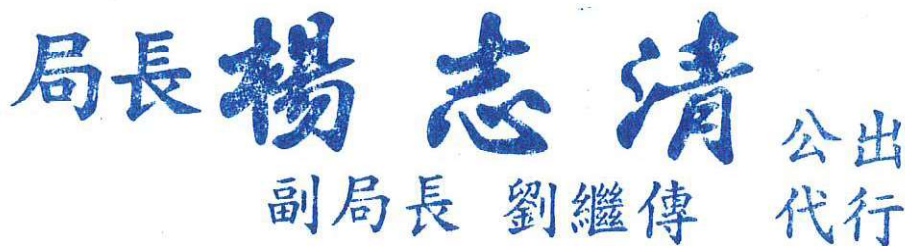 局長楊志清 公出
副局長 劉繼傳 代行